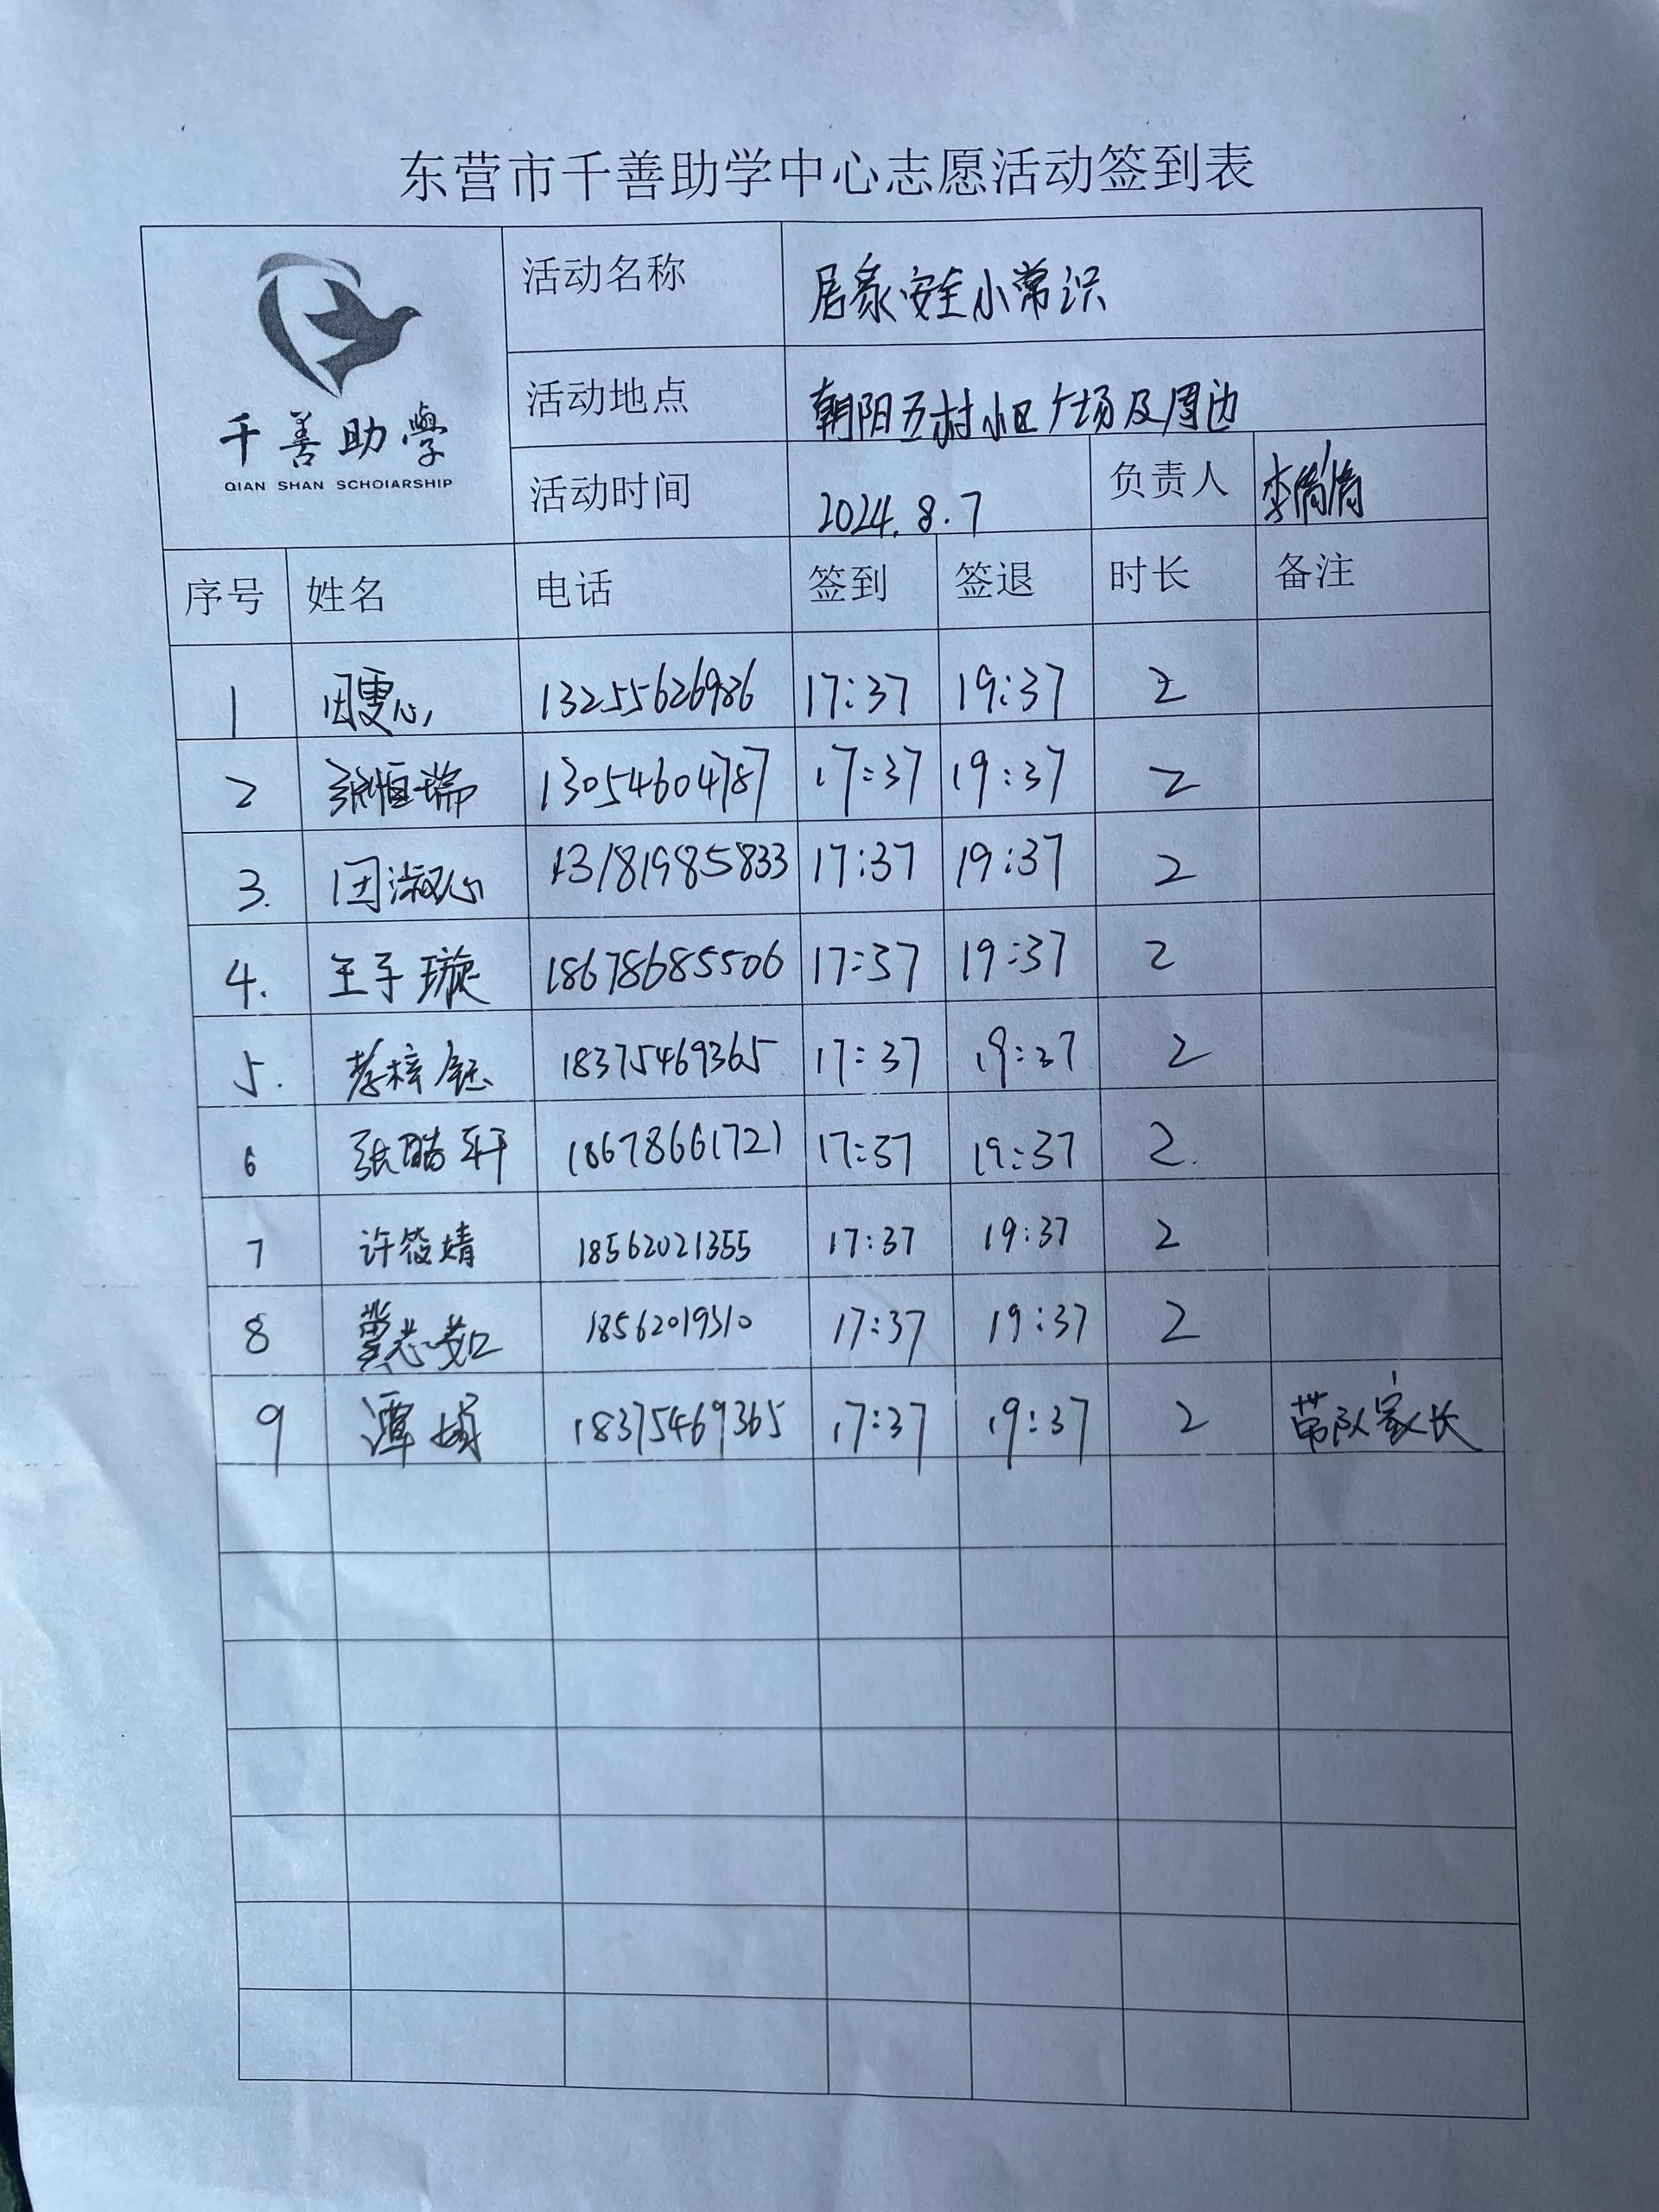 东营市千善助学中心志愿活动签到表
千善助學
QIAN SHAN SCHOIARSHIP
活动名称 居家安全小常识
活动地点 朝阳五村小区广场及周边
活动时间 2024.8.7 负责人 李倩倩
序号 姓名 电话 签到 签退 时长 备注
1 13255626986 17:37 19:37 2
2 张恒瑞 13054604787 17:37 19:37 2
3. 淑心 13181985833 17:37 19:37 2
4. 王子璇 18678685506 17:37 19:37 2
5. 李梓钰 18375469365 17:37 19:37 2
6 张皓轩 18678661721 17:37 19:37 2.
7 许筱婧 18562021355 17:37 19:37 2
8 冀芯茹 18562019310 17:37 19:37 2
9 谭娟 18375469365 17:37 19:37 2 带队家长